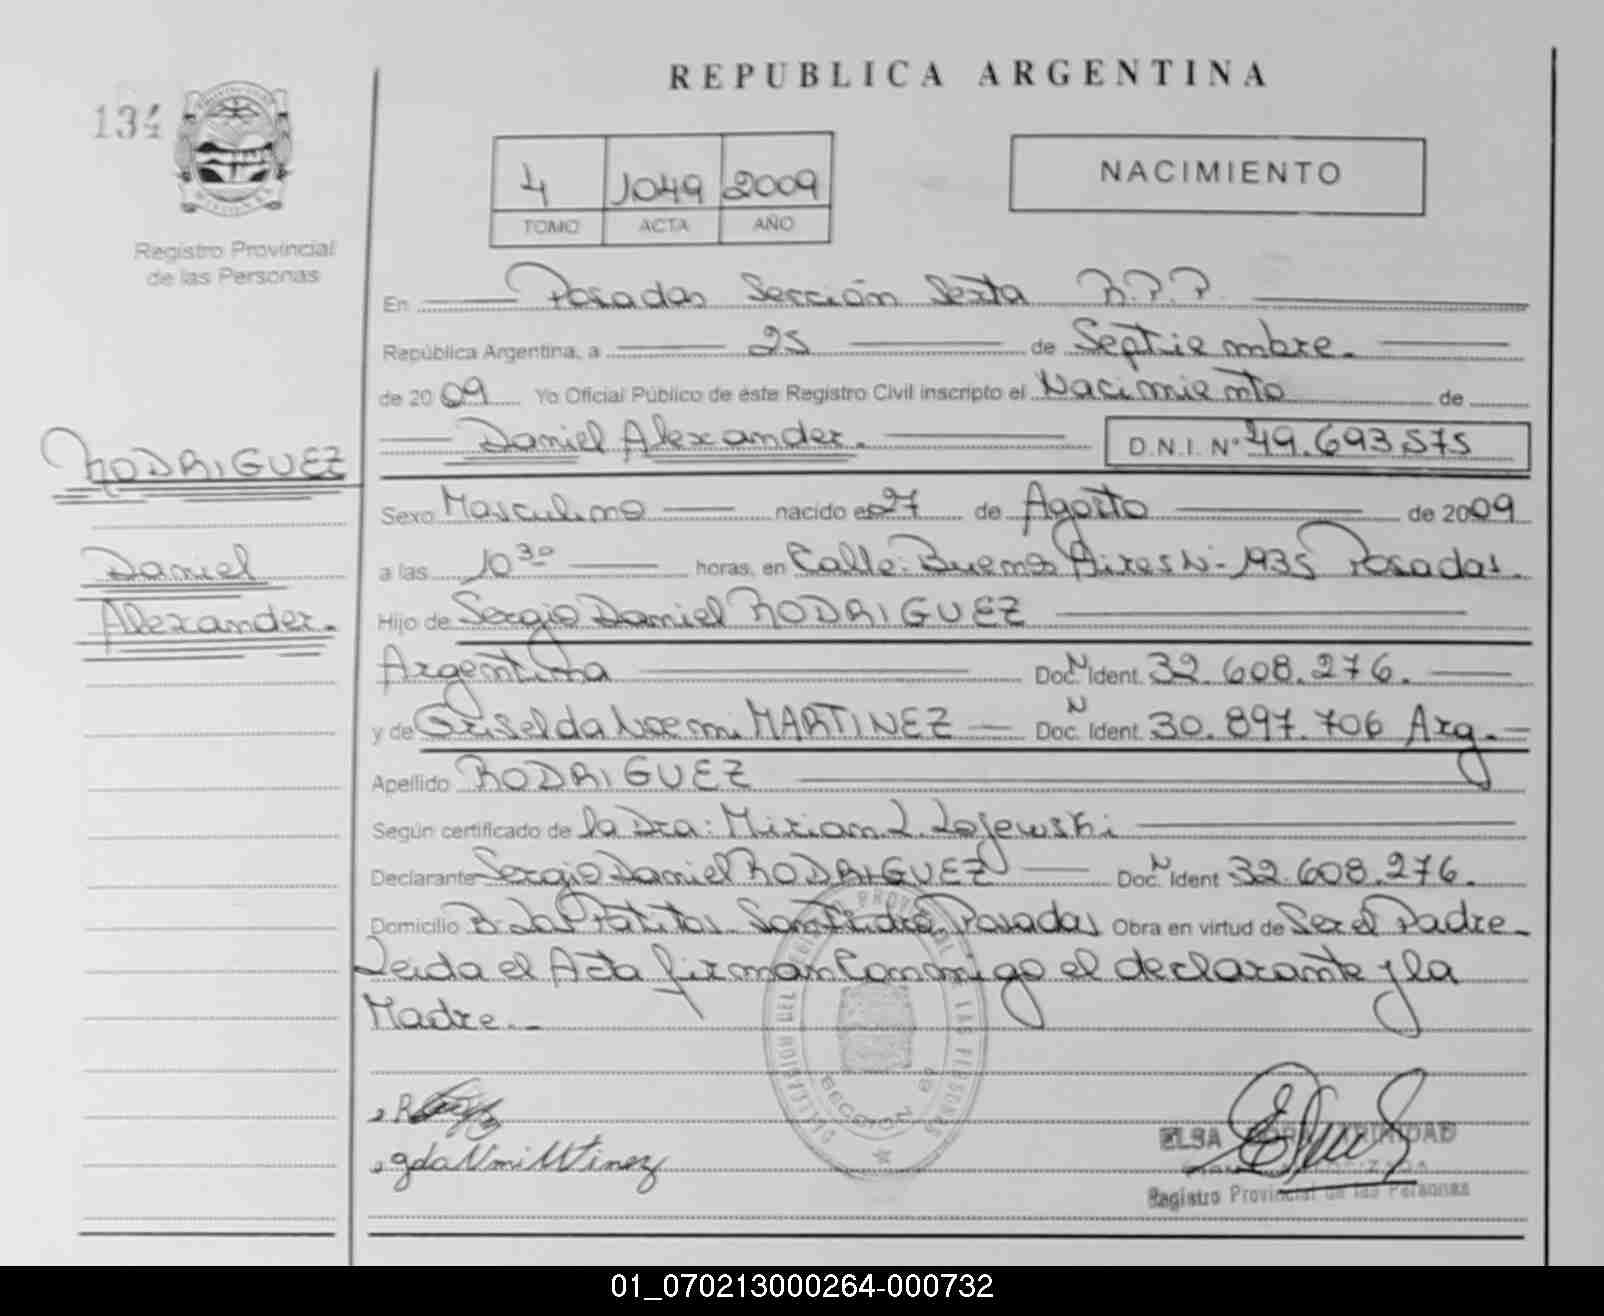 REPUBLICA ARGENTINA
134
4 1049 2009
TOMO ACTA AÑO
NACIMIENTO
Registro Provincial
de las Personas
En Posadas Sección Sexta R.P.P.
República Argentina, a 25 de Septiembre.
de 2009 Yo Oficial Público de éste Registro Civil inscripto el Nacimiento de
Daniel Alexander. D.N.I. Nº 49.693.575
RODRIGUEZ
Daniel
Alexander.
Sexo Masculino nacido el 27 de Agosto de 2009
a las 10 30 horas, en Calle: Buenos Aires N- 1935 Posadas.
Hijo de Sergio Daniel RODRIGUEZ
Argentina Doc. N Ident. 32.608.276.
y de Griselda Noemi MARTINEZ Doc. N Ident. 30.897.706 Arg.
Apellido RODRIGUEZ
Según certificado de la Dra: Mirian L.
Declarante Sergio Daniel RODRIGUEZ Doc. N Ident 32.608.276.
Domicilio B. Las Posadas Obra en virtud de Ser el Padre
Leida el Acta firman Conmigo el declarante y la
Madre.
DELEGACION DEL REGISTRO PROVINCIAL DE LAS PERSONAS
SECCION 6ª
ELSA
Registro Provincial de las Personas
01_070213000264-000732